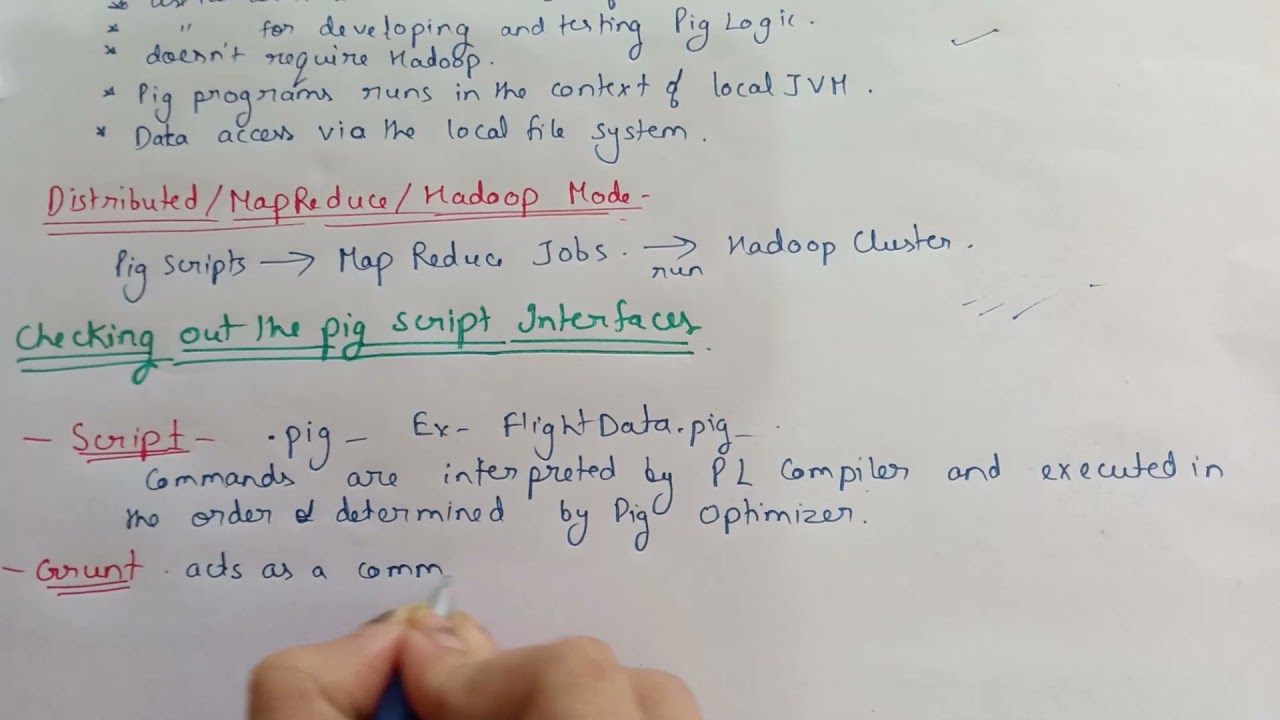 * " for developing and testing Pig Logic.
* doesn't require Hadoop.
* Pig programs runs in the context of local JVM.
* Data access via the local file system.
Distributed/MapReduce/Hadoop Mode-
Pig Scripts → Map Reduce Jobs. → run Hadoop Cluster.
Checking out the pig script Interfaces.
- Script - .pig - Ex- FlightData.pig -
Commands are interpreted by PL Compiler and executed in
the order determined by Pig Optimizer.
- Grunt. acts as a comm